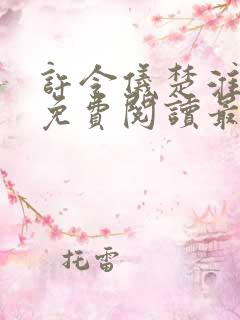 許令儀楚淮
免費閱讀最
托雷